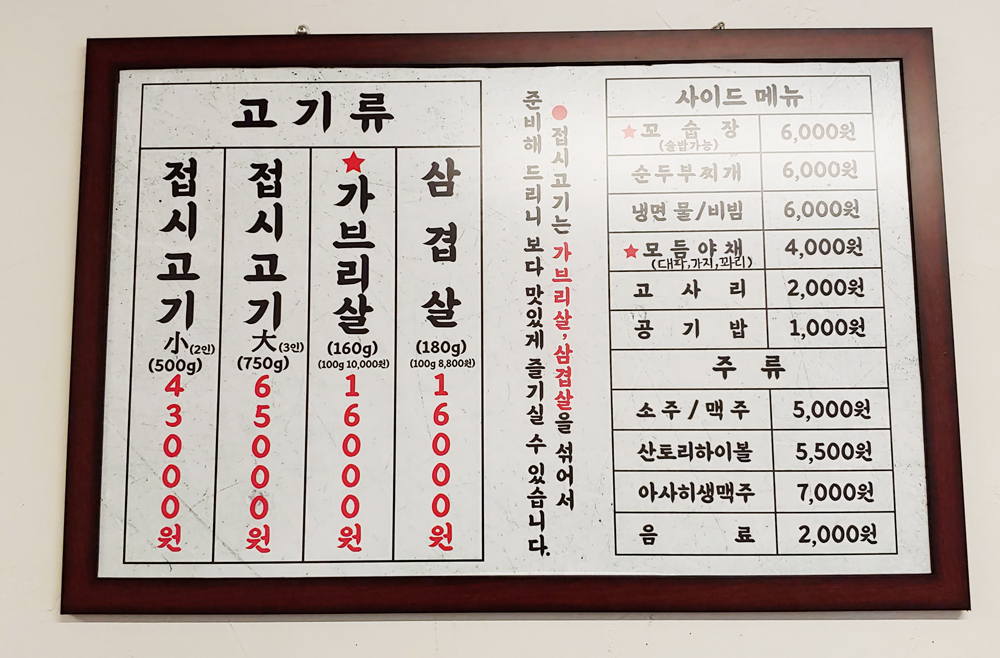 고기류
접시고기 小(2인)
(500g)
43000원
접시고기 大(3인)
(750g)
65000원
★가브리살
(160g)
(100g 10,000원)
16000원
삼겹살
(180g)
(100g 8,800원)
16000원
●접시고기는 가브리살,삼겹살을 섞어서
준비해 드리니 보다 맛있게 즐기실 수 있습니다.
사이드 메뉴
★꼬숩장 6,000원
(술밥가능)
순두부찌개 6,000원
냉면 물/비빔 6,000원
★모듬야채 4,000원
(대파,가지,꽈리)
고사리 2,000원
공기밥 1,000원
주류
소주/맥주 5,000원
산토리하이볼 5,500원
아사히생맥주 7,000원
음료 2,000원